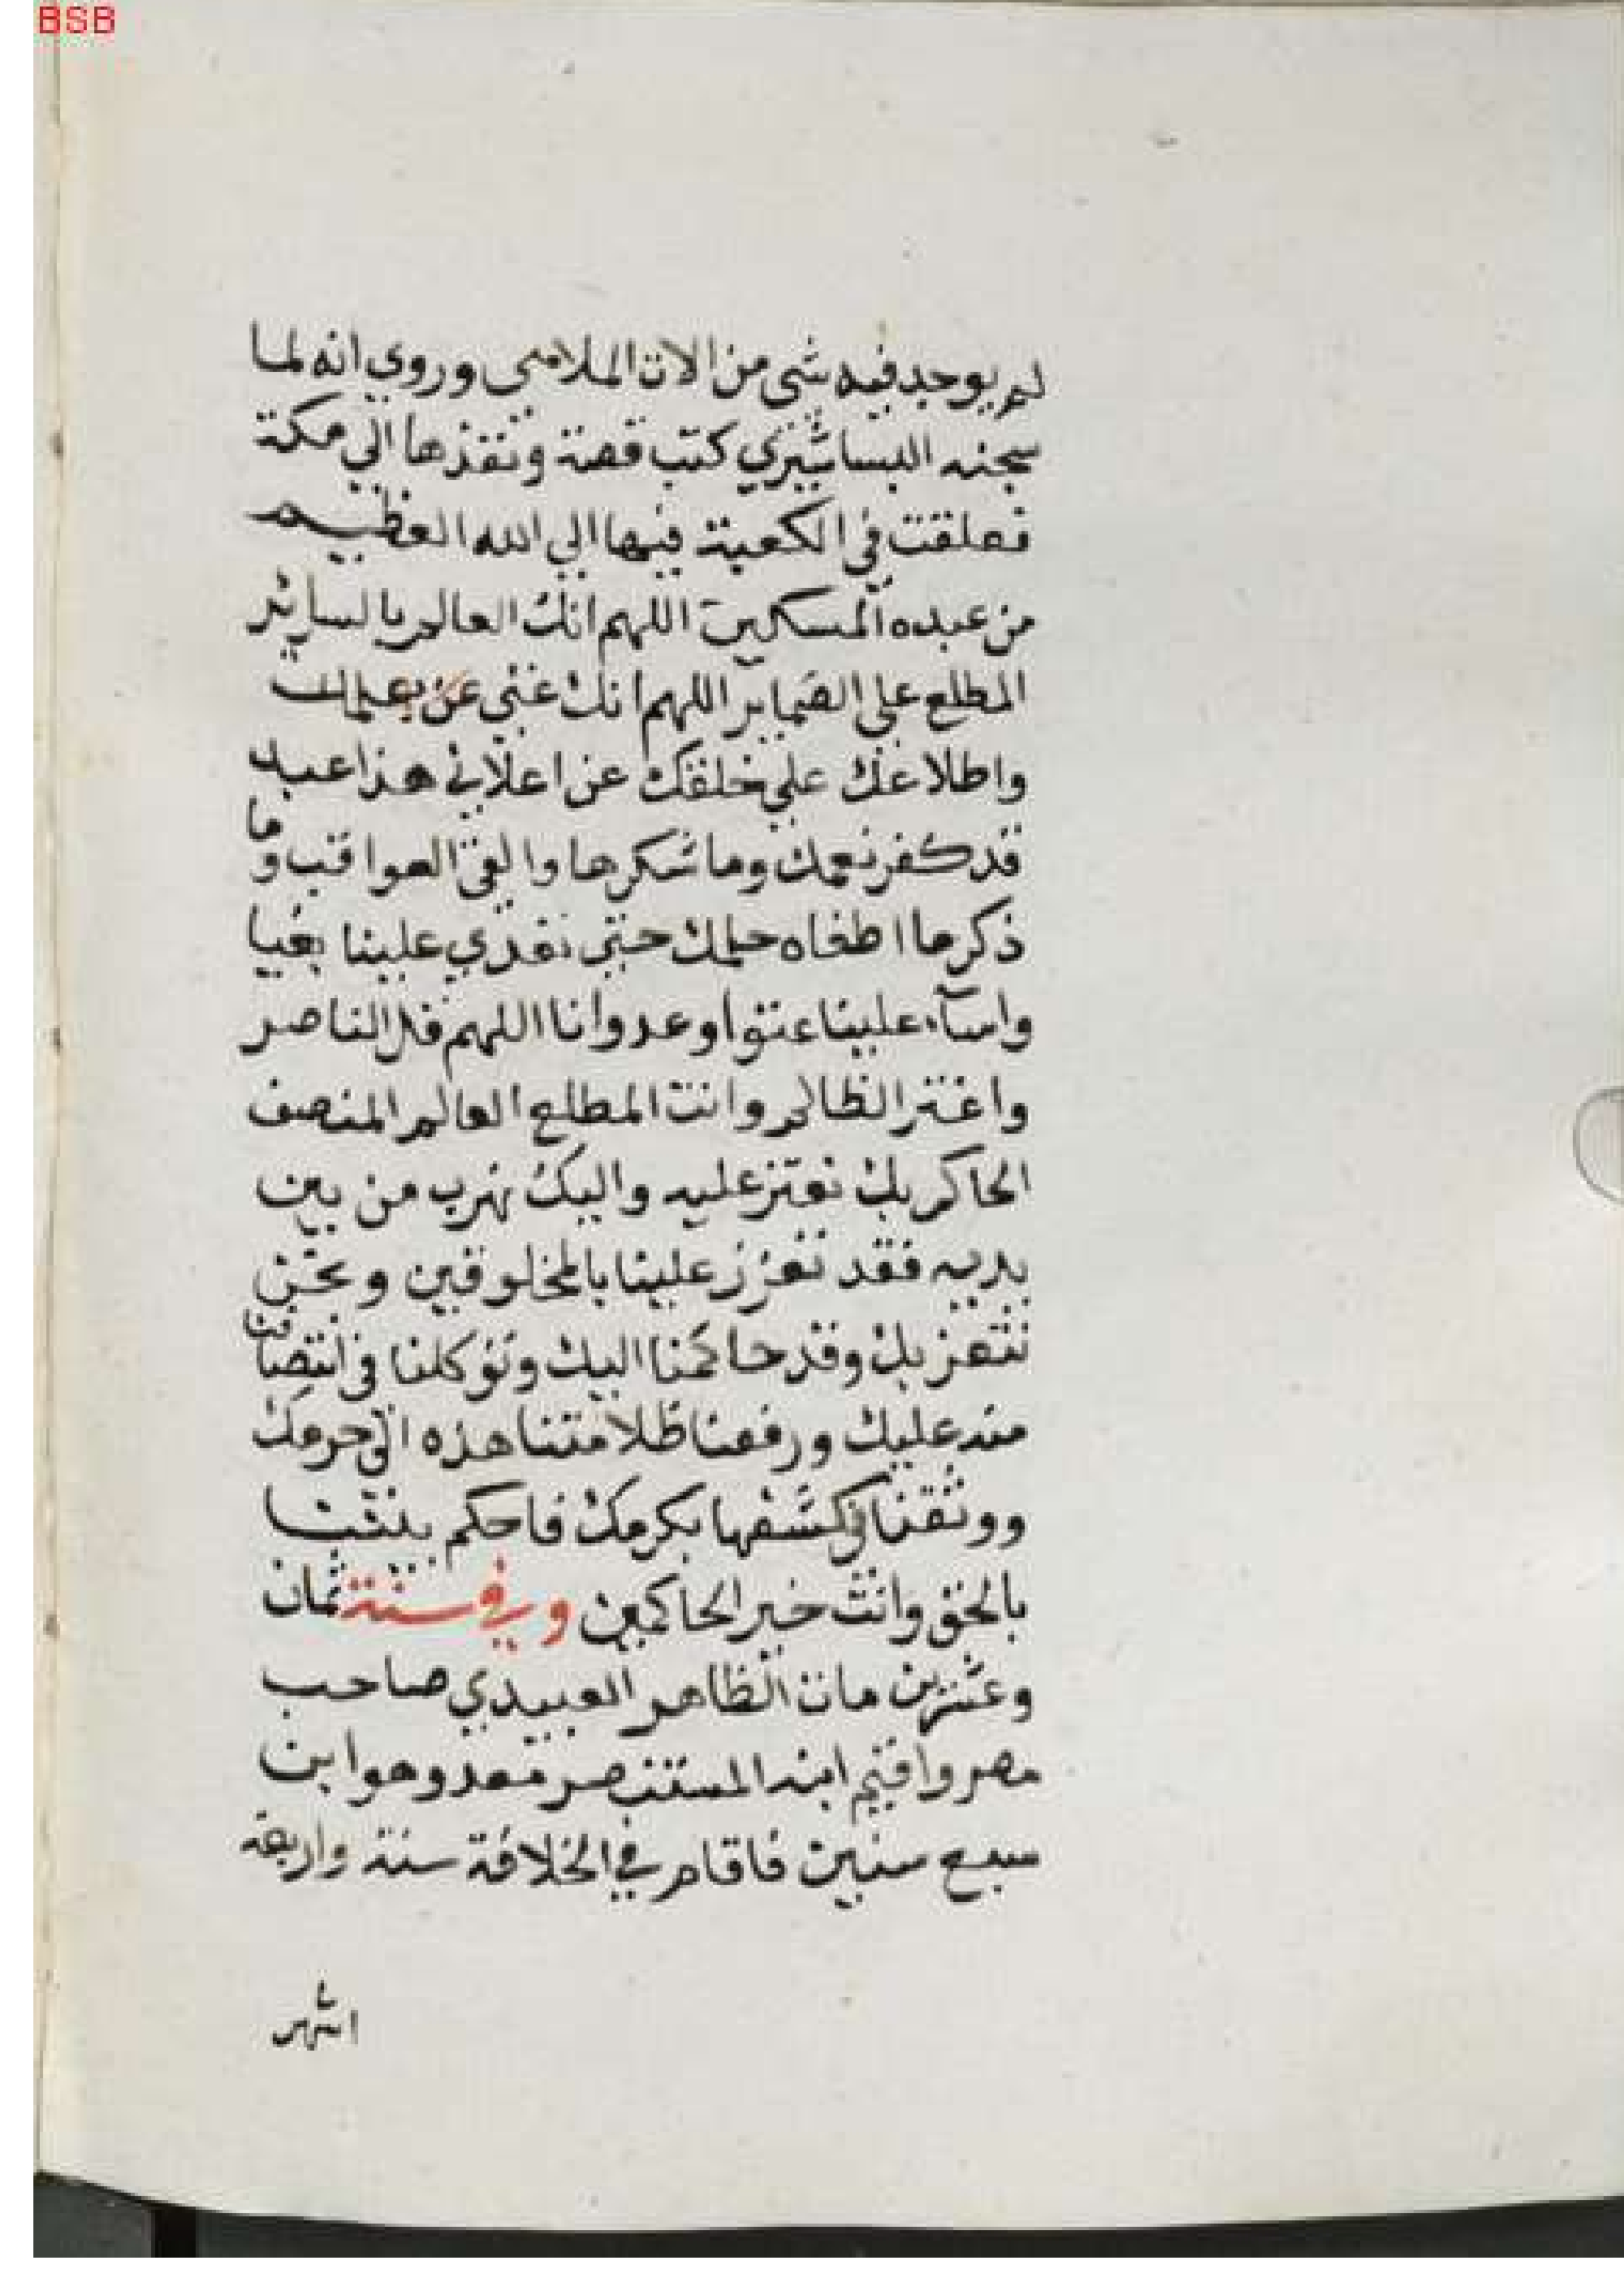 BSB
لم يوجد فيه شي من الات الملاهي وروي انه لما
سجنه البساشيري كتب قصة ونفذها الي مكة
فعلقت في الكعبة فيها الي الله العظيم
من عبده المسكين اللهم انك العالم بالسراير
المطلع علي الضماير اللهم انك غني عن بعلمك
واطلاعك علي خلقك عن اعلاني هذا عبد
قد كفر نعمك وما شكرها والقي العواقب وما
ذكرها اطغاه حلمك حتي تعدي علينا بغيا
واسآء علينا عتوا وعدوانا اللهم قل الناصر
واغتر الظالم وانت المطلع العالم المنصف
الحاكم بك نعتز عليه واليك نهرب من بين
يديه فقد تعزز علينا بالمخلوقين ونحن
نتعز بك وقد حاكمنا اليك وتوكلنا في انتصافنا
منه عليك ورفعنا ظلامتنا هذه الي حرمك
ووثقنا في كشفها بكرمك فاحكم بيننا
بالحق وانت خير الحاكمين وفي سنة ثمان
وعشرين مات الظاهر العبيدي صاحب
مصر واقيم ابنه المستنصر معد وهو ابن
سبع سنين فاقام في الخلافة سنة واربعة
اشهر